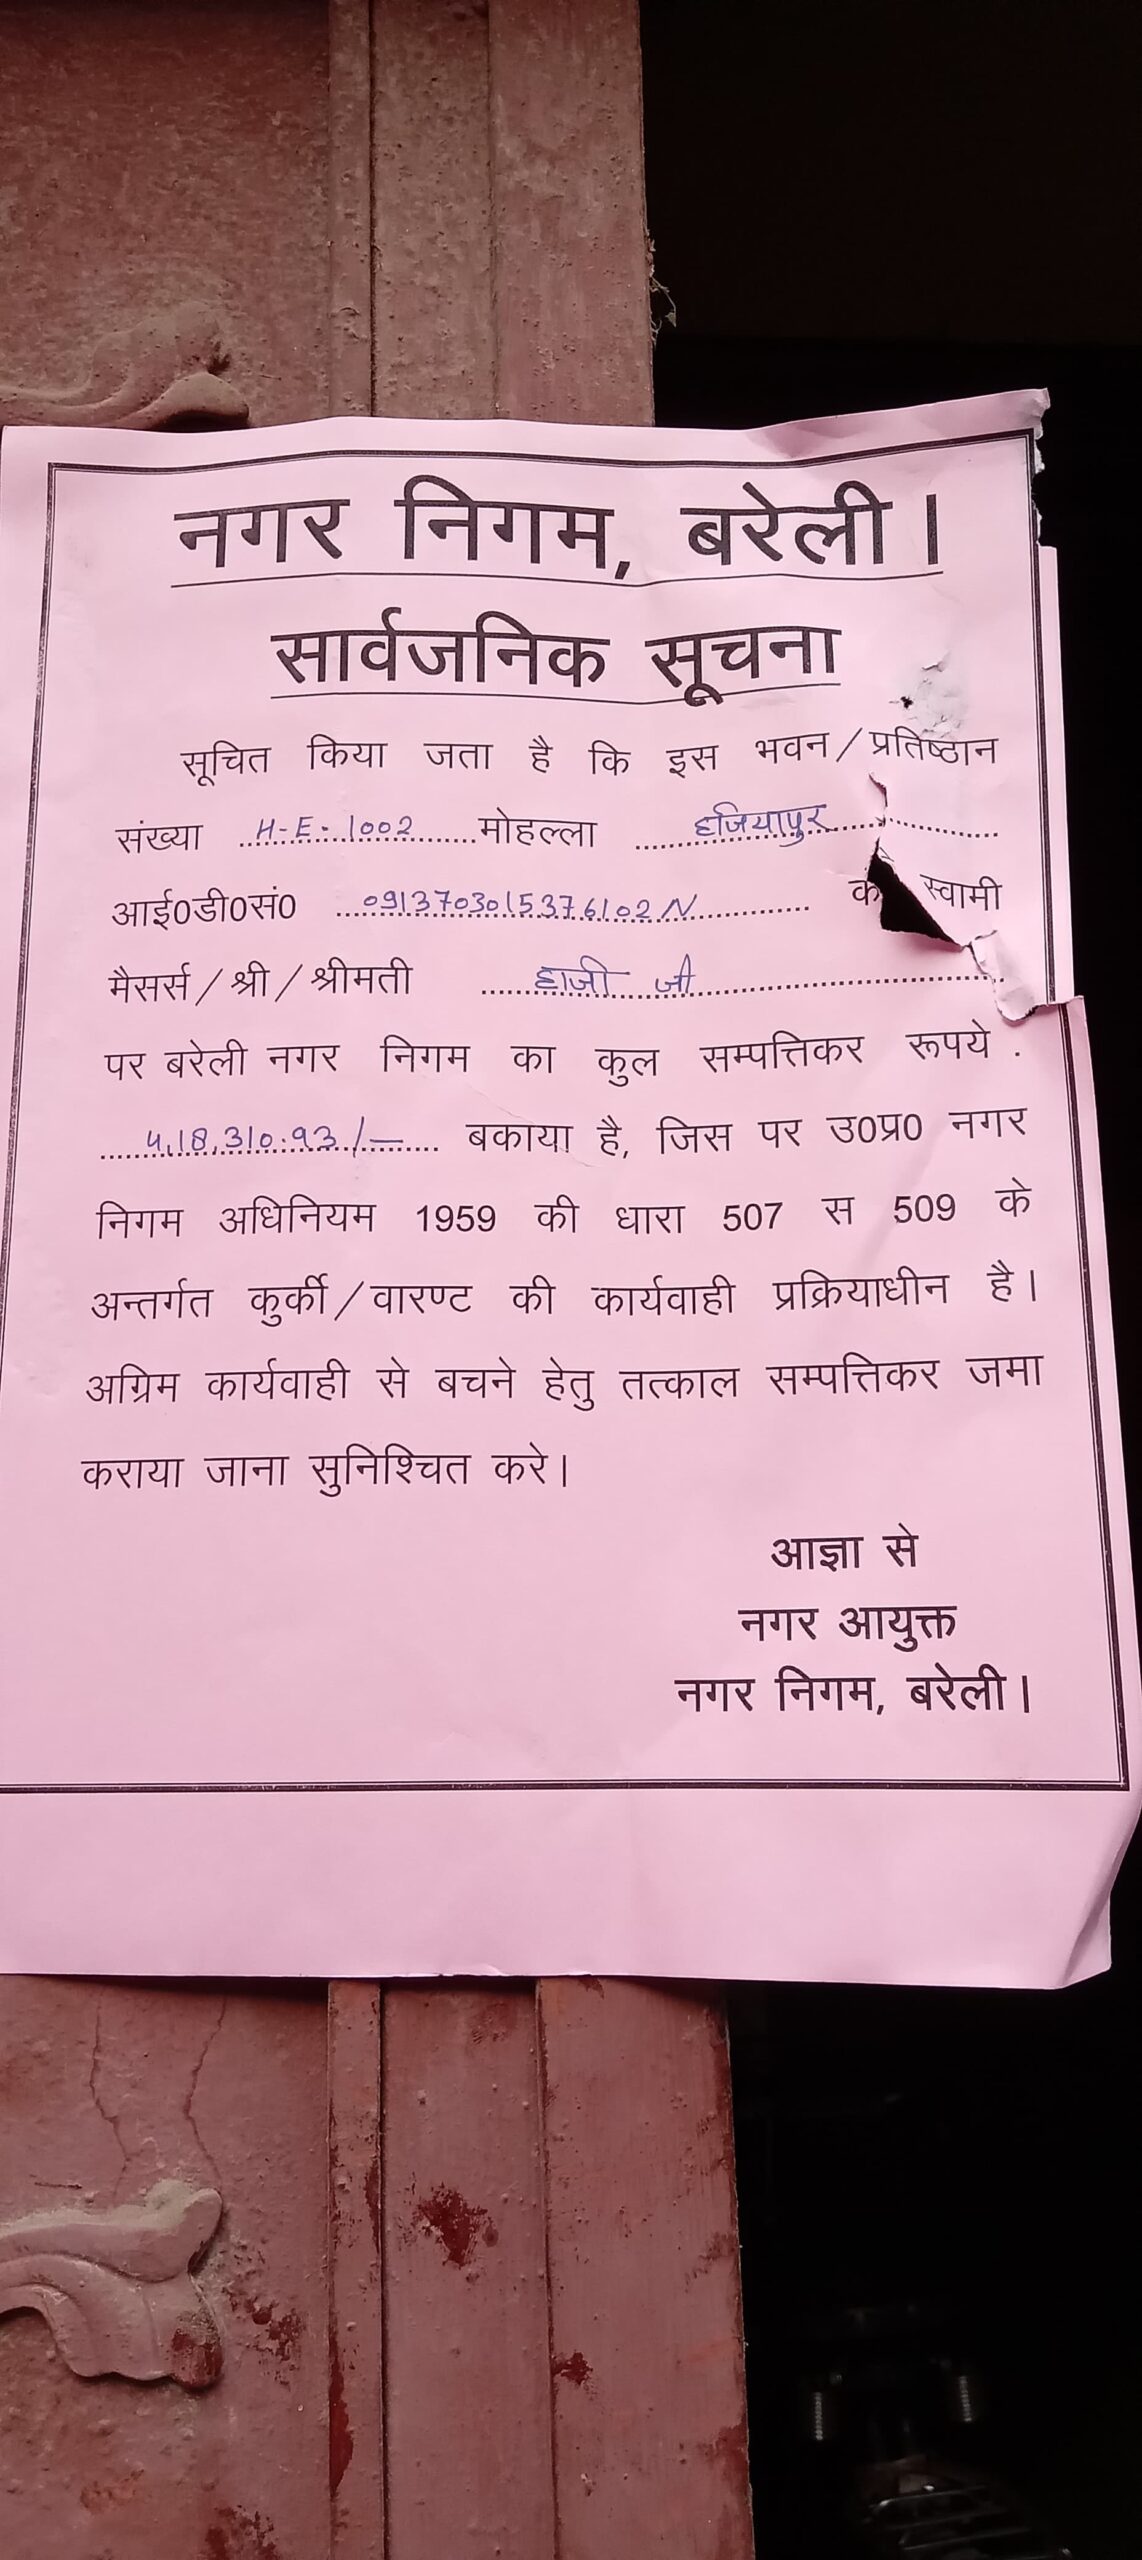 नगर निगम, बरेली।
सार्वजनिक सूचना
सूचित किया जता है कि इस भवन/प्रतिष्ठान
संख्या H-E-1002 मोहल्ला हजियापुर
आई0डी0सं0 0913703015376102N के स्वामी
मैसर्स/श्री/श्रीमती हाजी जी
पर बरेली नगर निगम का कुल सम्पत्तिकर रूपये .
4,18,310.93/- बकाया है, जिस पर उ0प्र0 नगर
निगम अधिनियम 1959 की धारा 507 स 509 के
अन्तर्गत कुर्की/वारण्ट की कार्यवाही प्रक्रियाधीन है।
अग्रिम कार्यवाही से बचने हेतु तत्काल सम्पत्तिकर जमा
कराया जाना सुनिश्चित करे।
आज्ञा से
नगर आयुक्त
नगर निगम, बरेली।